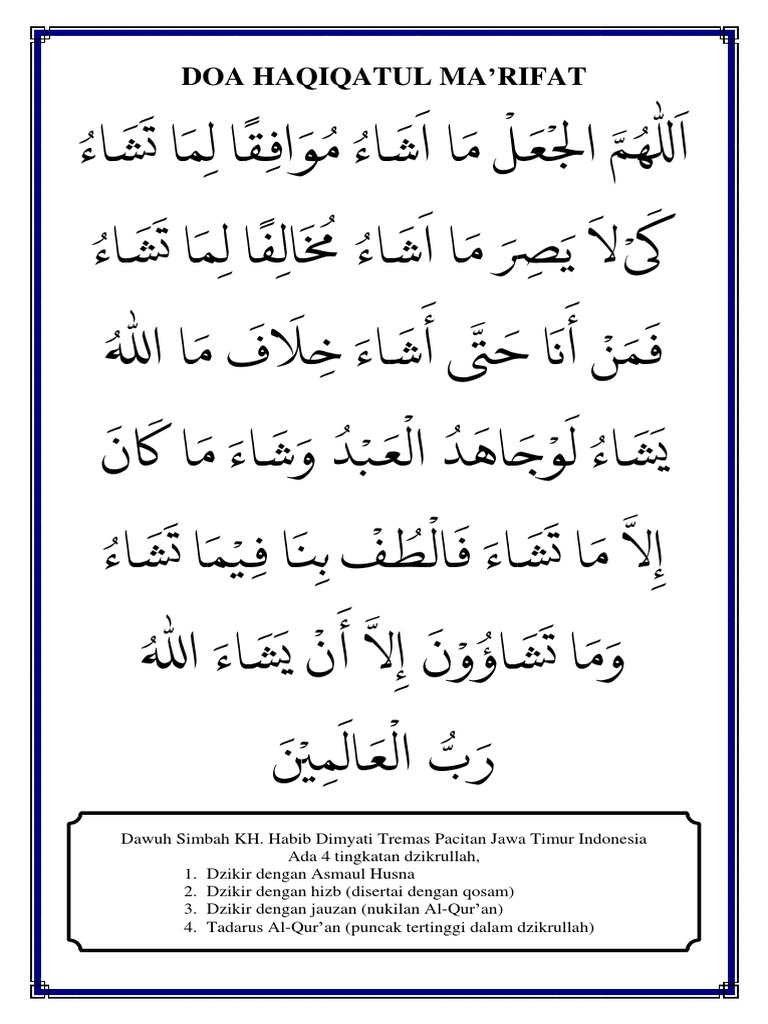 DOA HAQIQATUL MA’RIFAT
اَللّٰهُمَّ الجْعَلْ مَا اَشَاءُ مُوَافِقًا لِمَا تَشَاءُ
كَىْ لاَ يَصِرَ مَا اَشَاءُ مُخَالِفًا لِمَا تَشَاءُ
فَمَنْ أَنَا حَتَّى أَشَاءَ خِلَافَ مَا اللهُ
يَشَاءُ لَوْجَاهَدُ الْعَبْدُ وَشَاءَ مَا كَانَ
إِلاَّ مَا تَشَاءَ فَالْطُفْ بِنَا فِيْمَا تَشَاءُ
وَمَا تَشَاؤُوْنَ إِلاَّ أَنْ يَشَاءَ اللهُ
رَبُّ الْعَالَمِيْنَ
Dawuh Simbah KH. Habib Dimyati Tremas Pacitan Jawa Timur Indonesia
Ada 4 tingkatan dzikrullah,
1. Dzikir dengan Asmaul Husna
2. Dzikir dengan hizb (disertai dengan qosam)
3. Dzikir dengan jauzan (nukilan Al-Qur’an)
4. Tadarus Al-Qur’an (puncak tertinggi dalam dzikrullah)